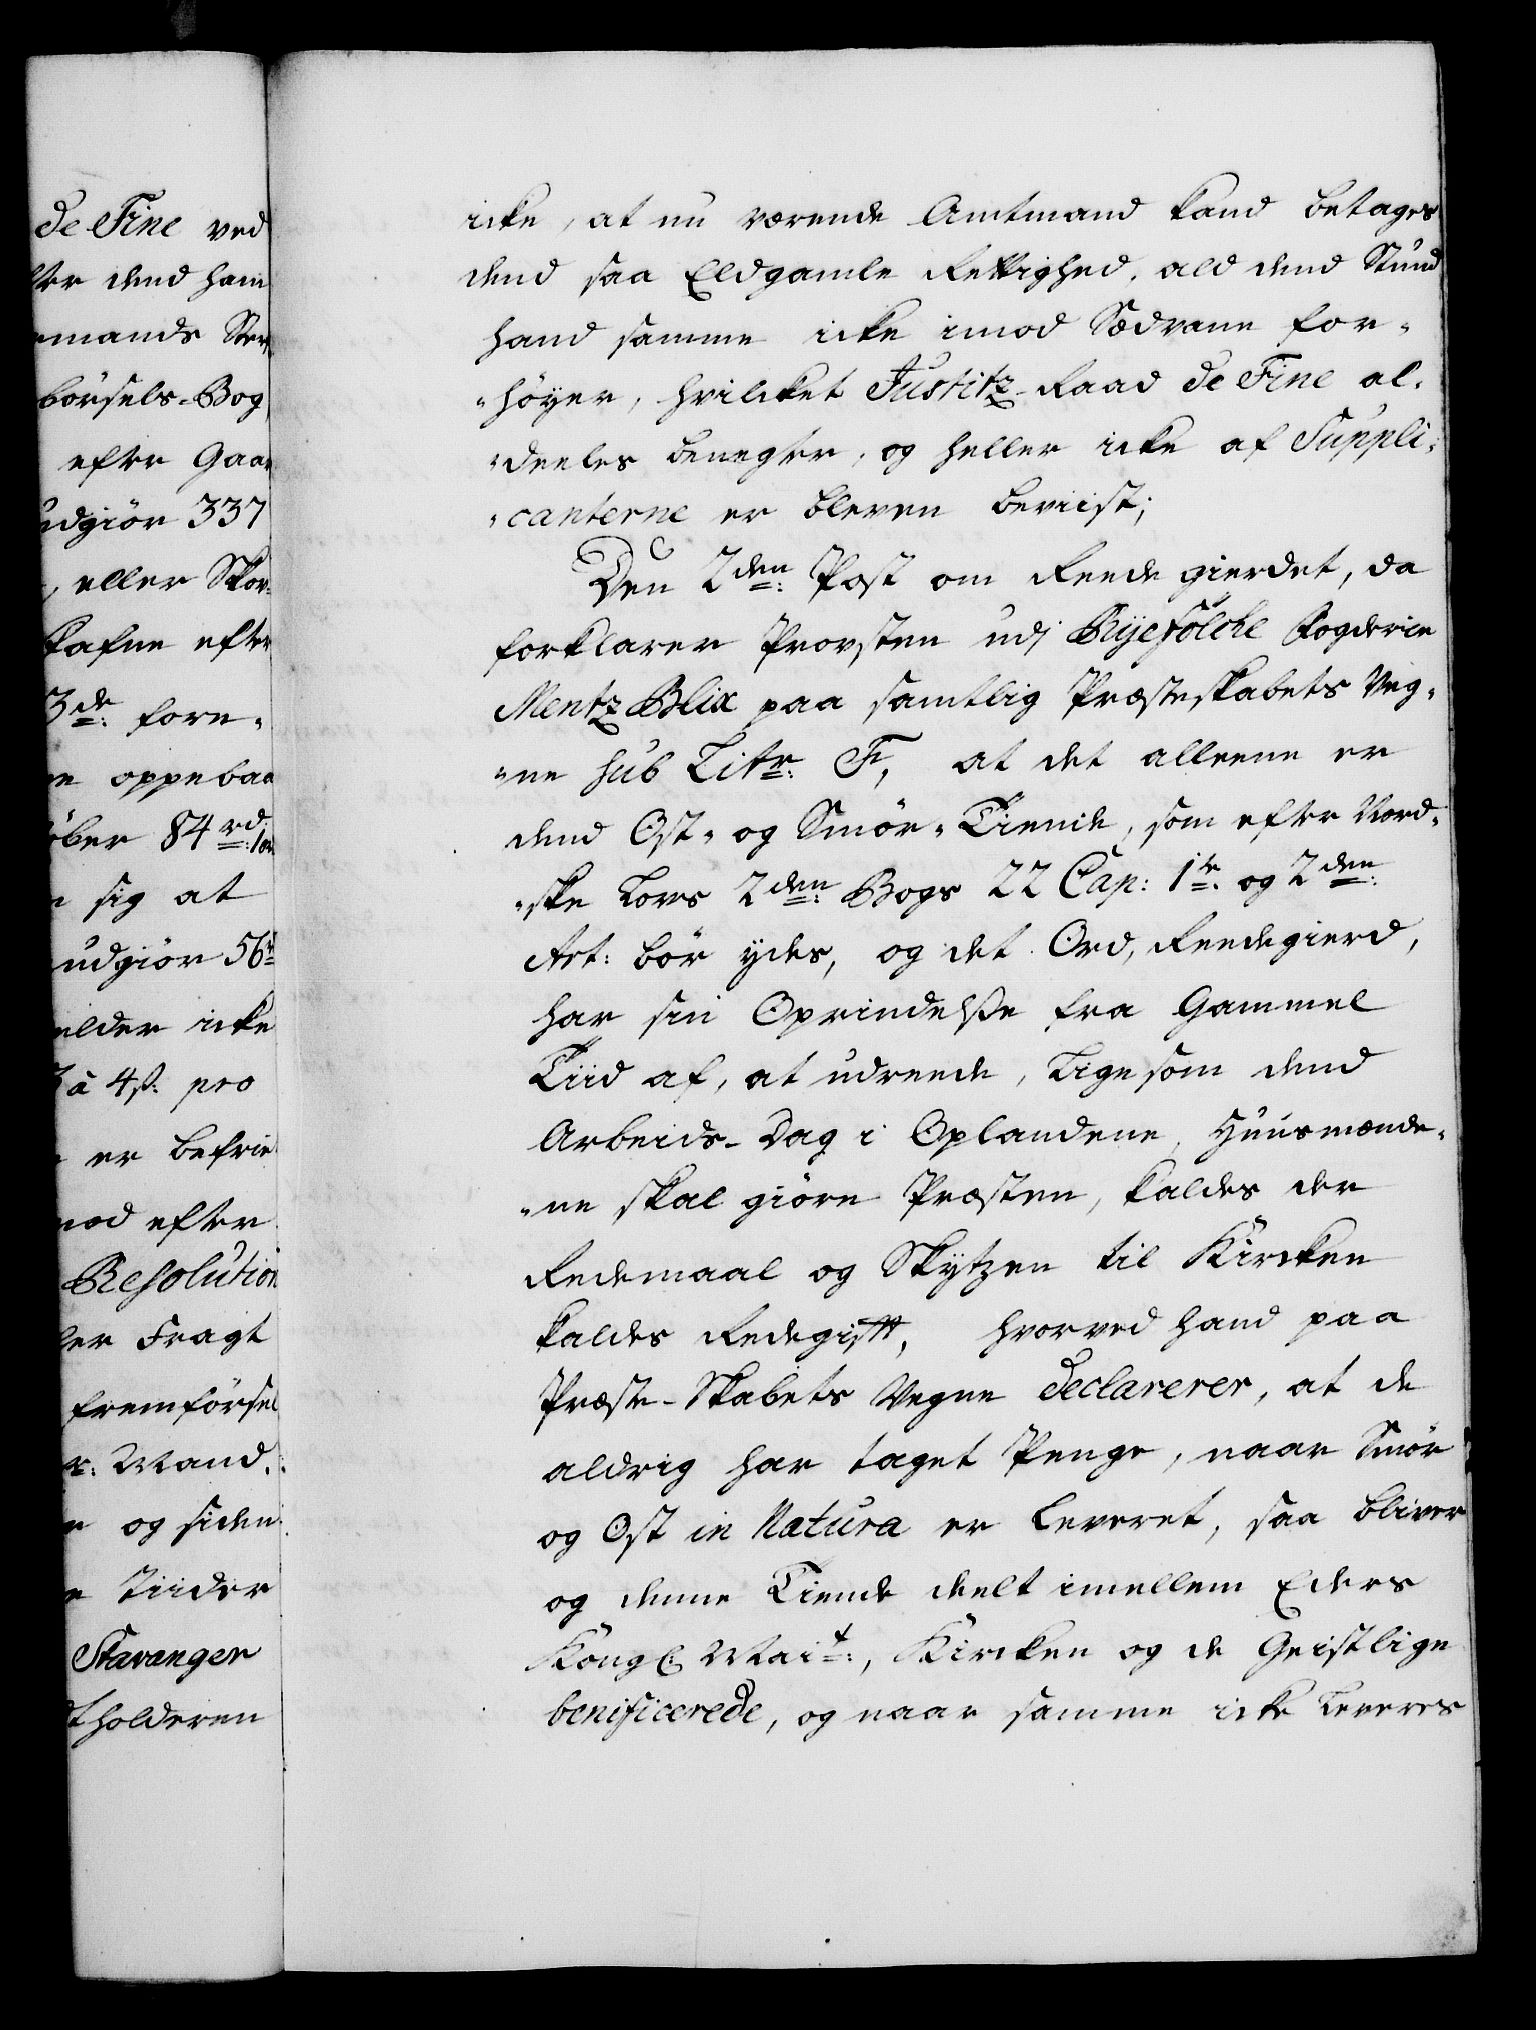 de Fine ved
dend ham
mands
börsels-Bog
efter Gaar
udgiör 337
, eller Skov-
efter
3de: foru-
oppebaa
84 rd:
sig at
udgiör 56
icke
à 4 ß: pro
er befrie
efter
Resolution
Fragt
fremförsel
Mand.
og siden
Tiider
Stavanger
tholderen
icke, at nu værende Amtmand kand betages
dend saa Eldgamle Rettighed, ald dend Stund
hand samme icke imod Sædvane for-
-höyer, hvilcket Justitz-Raad de Fine al-
-deeles benegter, og heller icke af Suppli-
-canterne er bleven beviist;
Den 2den: Post om Reede gierdet, da
forklarer Provsten udj Ryefölche Fogderie
Mentz Blix paa samtlig Præsteskabets Veg-
-ne sub Litr: F, at det alleene er
dend Ost- og Smör-Tiende, som efter Nord-
-ske Lovs 2den: Bogs 22 Cap: 1te. og 2den:
Art: bör ydes, og det Ord, Reedegierd,
har sin Oprindelße fra Gammel
Tiid af, at udreede, Lige som dend
Arbeids-Dag i Oplandene, Huusmænde-
-ne skal giöre Præsten, kaldes der
Redemaal og Skytzen til Kircken
kaldes Redegifft, hvorved hand paa
Præste-Skabets Vegne declarerer, at de
aldrig har taget Penge, naar Smör
og Ost in Natura er leveret, saa bliver
og denne Tiende deelt imellem Eders
Kongl: Mait:, Kircken og de Geistlige
benificerede, og naar samme icke Leveres